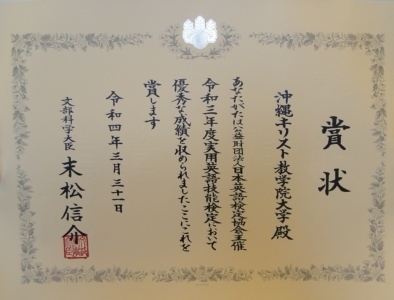 賞状
沖縄キリスト教学院大学殿
あなたがたは公益財団法人日本英語検定協会主催
令和三年度実用英語技能検定において
優秀な成績を収められました ここにこれを
賞します
令和四年三月三十一日
文部科学大臣
末松信介